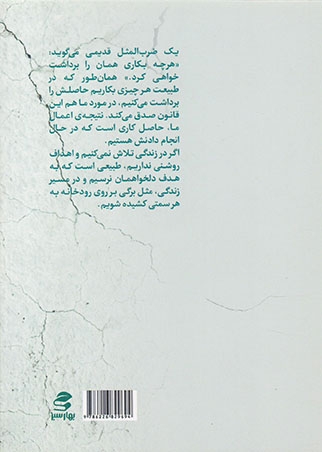 یک ضرب‌المثل قدیمی می‌گوید:
«هرچه بکاری همان را برداشت
خواهی کرد.» همان‌طور که در
طبیعت هر چیزی بکاریم حاصلش را
برداشت می‌کنیم، در مورد ما هم این
قانون صدق می‌کند. نتیجه‌ی اعمال
ما، حاصل کاری است که در حال
انجام دادنش هستیم.
اگر در زندگی تلاش نمی‌کنیم و اهداف
روشنی نداریم، طبیعی است که به
هدف دلخواهمان نرسیم و در مسیر
زندگی، مثل برگی بر روی رودخانه به
هر سمتی کشیده شویم.
بهار سبز